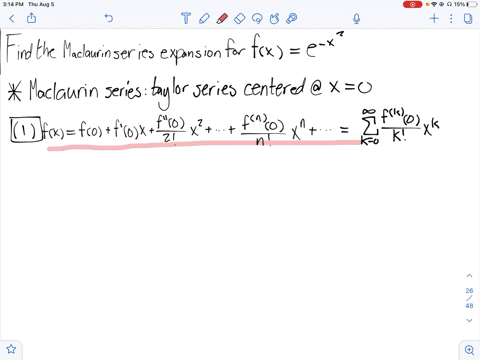 3:14 PM Thu Aug 5
15%
Find the Maclaurin series expansion for f(x) = e^{-x^2}
* Maclaurin series: taylor series centered @ x=0
(1) f(x) = f(0) + f'(0)x + \frac{f''(0)}{2!} x^2 + ... + \frac{f^{(n)}(0)}{n!} x^n + ... = \sum_{k=0}^{∞} \frac{f^{(k)}(0)}{k!} x^k
26
/
48